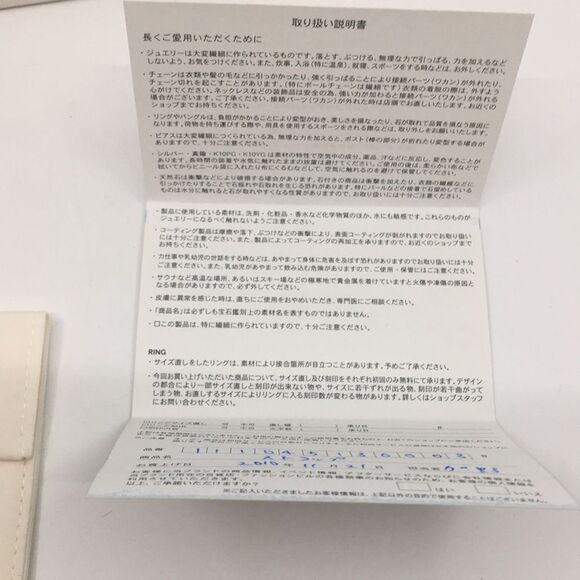 取り扱い説明書
長くご愛用いただくために
・ジュエリーは大変繊細に作られているものです。落とす、ぶつける、無理な力で引っぱる、力を加えるなど
しないよう、お気をつけください。また、炊事、入浴(特に温泉)、就寝、スポーツをする時などは、お外しください。
・チェーンは衣類や髪の毛などに引っかかったり、強く引っぱることにより接続パーツ(ワカン)が外れたり、
チェーン切れを起こすことがあります。(特にボールチェーンは繊細です)衣類の着脱の際は、外すよう
心がけてください。ネックレスなどの装飾品は安全の為、強い力が加わると接続パーツ(ワカン)が外れる
場合がございます。ご了承ください。接続パーツ(ワカン)が外れた時は店頭でお直しいたします。お近くの
ショップまでお持ちください。
・リングやバングルは、負担がかかることにより変型がおき、美しさを損なったり、石が取れて品質を損なう原因に
なります。荷物を持ち運びする際や、用具を使用するスポーツをされる際などは、取り外しをお願いいたします。
・ピアスは大変繊細につくられている為、無理な力を加えると、ポスト(棒の部分)が折れたり変型する場合が
ありますので、十分ご注意ください。
・シルバー・真鍮・K10PG・K10YGは素材の特性で空気中の成分、薬品、汗などに反応し、変色することが
あります。長時間の装着や水気に触れたままの放置は避けてください。ご使用の後は、柔らかい布などで
拭いてからビニール袋に入れたり布にくるむなどして、空気に触れるのを避けて保管してください。
・天然石は衝撃などにより破損する場合があります。石付きの商品は衝撃を加えたり、衣類の繊維などに
引っかけたりすることで石揺れや石取れを生じる恐れがあります。特にパールなどの接着で石留めしている
ものは水分に触れると石が取れやすくなる性質がありますので、お取り扱いには十分ご注意ください。
・製品に使用している素材は、洗剤・化粧品・香水など化学物質のほか、水にも敏感です。これらのものが
ジュエリーになるべく触れないようご注意ください。
・コーティング製品は摩擦や落下、ぶつけなどの衝撃により、表面コーティングが剥がれますのでお取り扱い
には十分ご注意ください。また、製品によってコーティングの再加工を承りますので、お近くのショップまで
お持ちください。
・力仕事や乳幼児の世話をする時などは、あやまって身体に危害を及ぼす恐れがありますのでお取り扱いには十分
ご注意ください。また、乳幼児があやまって飲み込む危険がありますので、ご使用・保管にはご注意ください。
・サウナなど高温な場所、あるいはスキー場などの極寒地で貴金属を着けていますと火傷や凍傷の原因と
なる場合がありますので、必ず外してください。
・皮膚に異常を感じた時は、直ちにご使用をおやめいただき、専門医にご相談ください。
・「商品名」は必ずしも宝石鑑別上の素材名を表すものではありません。
・□この製品は、特に繊細に作られていますので、十分ご注意ください。
RING
・サイズ直しをしたリングは、素材により接合箇所が目立つことがあります。予めご了承ください。
・今回お買い上げいただいた商品について、サイズ直し及び刻印をそれぞれ初回のみ無料にて承ります。デザイン
の都合により一部サイズ直しと刻印が出来ない物や、サイズに若干ずれが出る物、刻印が若干曲がって
しまう物、お直しするサイズによりリングに入る刻印数が変わる物があります。詳しくはショップスタッフ
にお問い合わせください。
品番
商品名
お買上げ日 2010年 11月 21日 担当
以上、ご承諾いただけますか? はい いいえ
※ご記入いただきましたお客様情報は、上記以外の目的で使用することはございません。